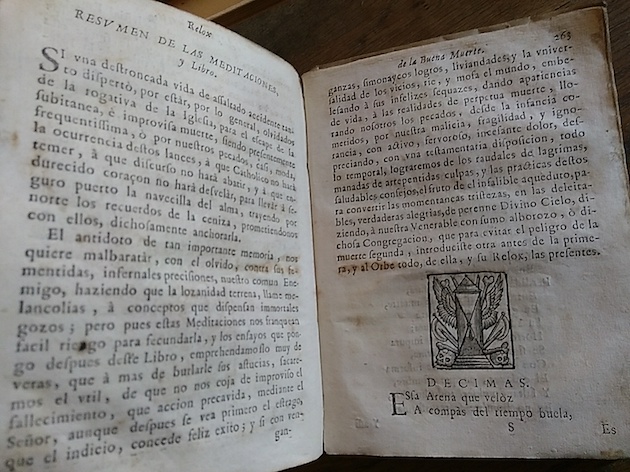 Relox
RESVMEN DE LAS MEDITACIONES,
y Libro.
SI vna destroncada vida de assaltado accidente tan-
to dispertò, por estàr, por lo general, olvidados
de la rogativa de la Iglesia, para el escape de la
subitanea, è improvisa muerte, siendo presentemente
frequentissima, ò por nuestros pecados, ceñs, moda,
la ocurrencia destos lances, à que Catholico no hará
temer, à que discurso no harà abatir, y à que en-
durecido coraçon no harà desvelar, para llevar à se-
guro puerto la navecilla del alma, trayendo por
norte los recuerdos de la ceniza, prometiendonos
con ellos, dichosamente anchorarla.
El antidoto de tan importante memoria, nos
quiere malbaratàr, con el olvido, contra sus
mentidas, infernales precisiones, nuestro comun Ene-
migo, haziendo que la lozanidad terrena, llame me-
lancolias, à conceptos que dispensan immortales
gozos; pero pues estas Meditaciones nos franquean
facil riesgo para fecundarla, y los ensayos que pon-
go despues deste Libro, emprehendamoslo muy de
veras, que à mas de burlarle sus astucias, sacare-
mos el vtil, de que no nos coja de improviso el
fallecimiento, que accion precavida, mediante el
Señor, aunque despues se vea primero el estrago,
que el indicio, concede feliz exito; y si con ven-
gan-
de la Buena Muerte. 263
ganzas, simoneycos logros, liviandades, y la vniver-
salidad de los vicios, rie, y mofa el mundo, embe-
lesando à sus infelizes sequazes, dando apariencias
de vida, à las realidades de perpetua muerte, llo-
rando nosotros los pecados, desde la infancia co-
metidos, por nuestra malicia, fragilidad, y igno-
rancia, con activo, fervoroso, incesante dolor, des-
preciando, con vna testamentaria disposicion, todo
lo temporal, lograremos de los raudales de lagrimas,
manadas de arrepentidas culpas, y las practicas destos
saludables consejos, el fruto de el infalible aqueduto, pa-
ra convertir las momentaneas tristezas, en las deleita-
bles, verdaderas alegrias, de perenne Divino Cielo, di-
ziendo, à nuestra Venerable con sumo alborozo, ò di-
chosa Congregacion, que para evitar el peligro de la
muerte segunda, introduciste otra antes de la prime-
ra, y al Orbe todo, de ella, y su Relox, las presentes.
DECIMAS.
ESsa Arena que veloz
A compàs del tiempo buela,
S
Es